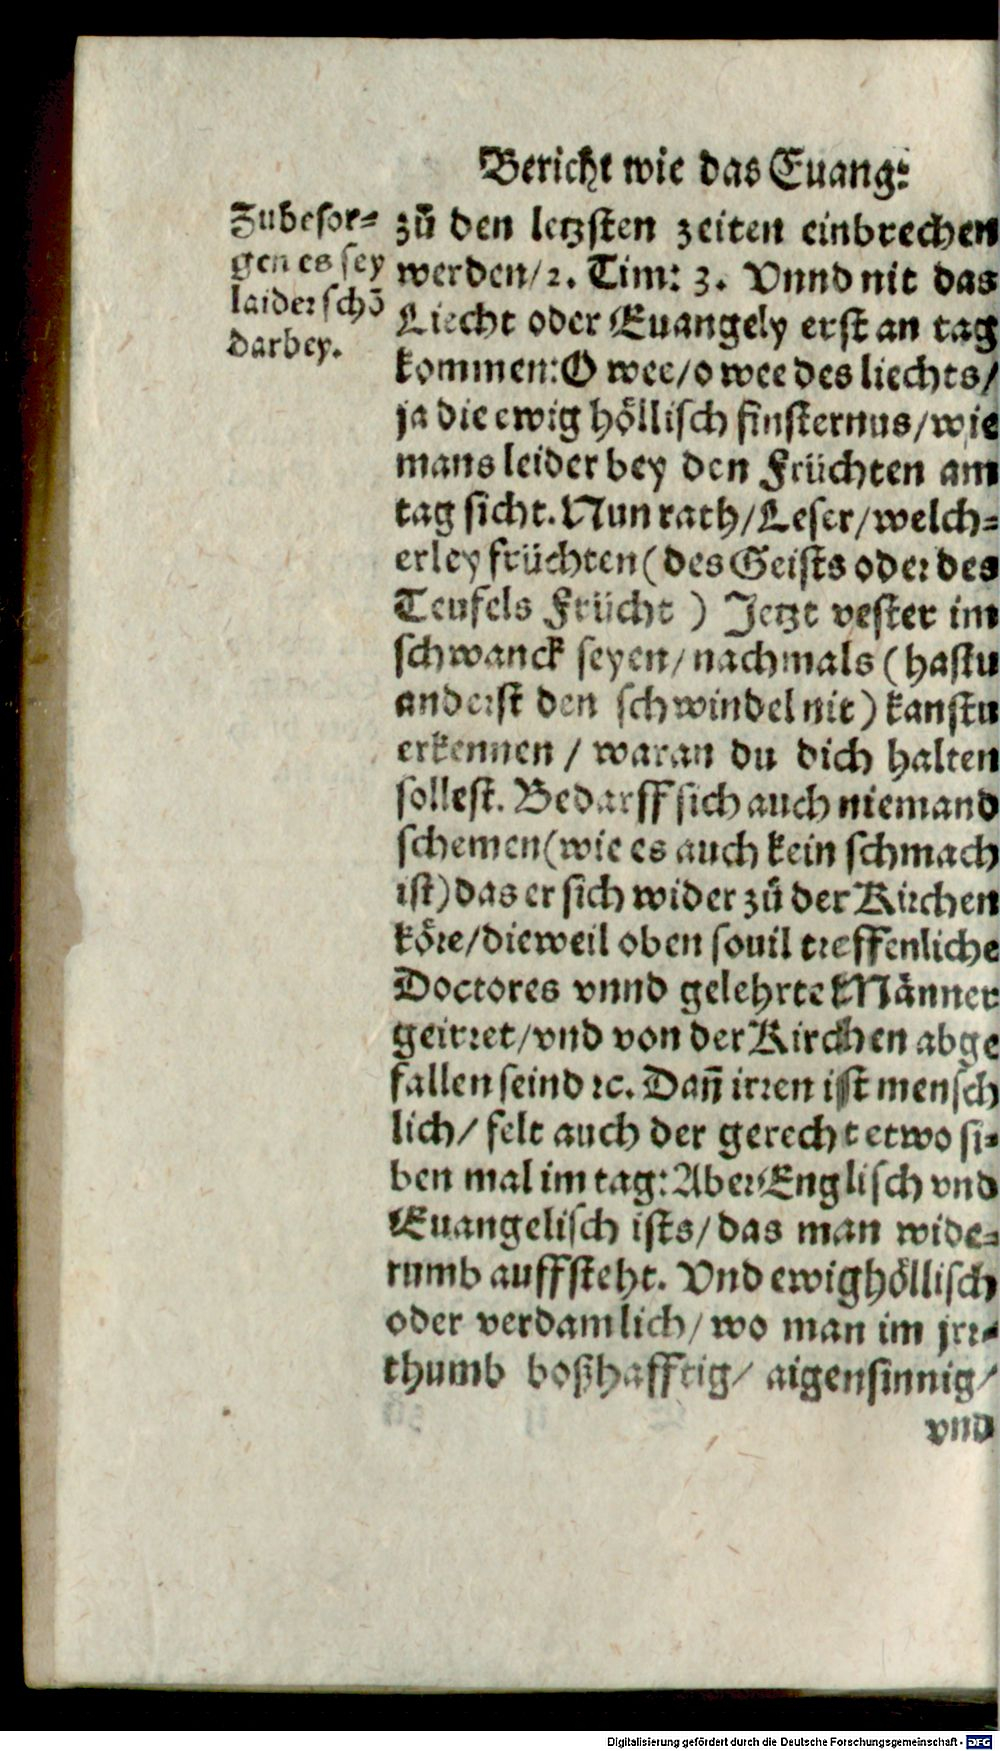 Bericht wie das Euang:
Zubesor=
gen es sey
laider schō
darbey.
zů den letzsten zeiten einbrechen
werden/2. Tim: 3. Vnnd nit das
Liecht oder Euangely erst an tag
kommen: O wee/o wee des liechts/
ja die ewig höllisch finsternus/wie
mans leider bey den Früchten am
tag sicht. Nun rath/Leser/welch=
erley früchten (des Geists oder des
Teufels Frücht ) Jetzt vester im
schwanck seyen/nachmals (hastu
anderst den schwindel nit) kanstu
erkennen / waran du dich halten
sollest. Bedarff sich auch niemand
schemen (wie es auch kein schmach
ist) das er sich wider zů der Kirchen
köre/dieweil oben souil treffenliche
Doctores vnnd gelehrte Männer
geirret/vnd von der Kirchen abge
fallen seind ꝛc. Dañ irren ist mensch
lich/ felt auch der gerecht etwo si=
ben mal im tag: Aber Englisch vnd
Euangelisch ists/das man wide=
rumb auffsteht. Vnd ewig höllisch
oder verdamlich/wo man im jrr=
thumb boßhafftig/ aigensinnig/
vnd
Digitalisierung gefördert durch die Deutsche Forschungsgemeinschaft - DFG